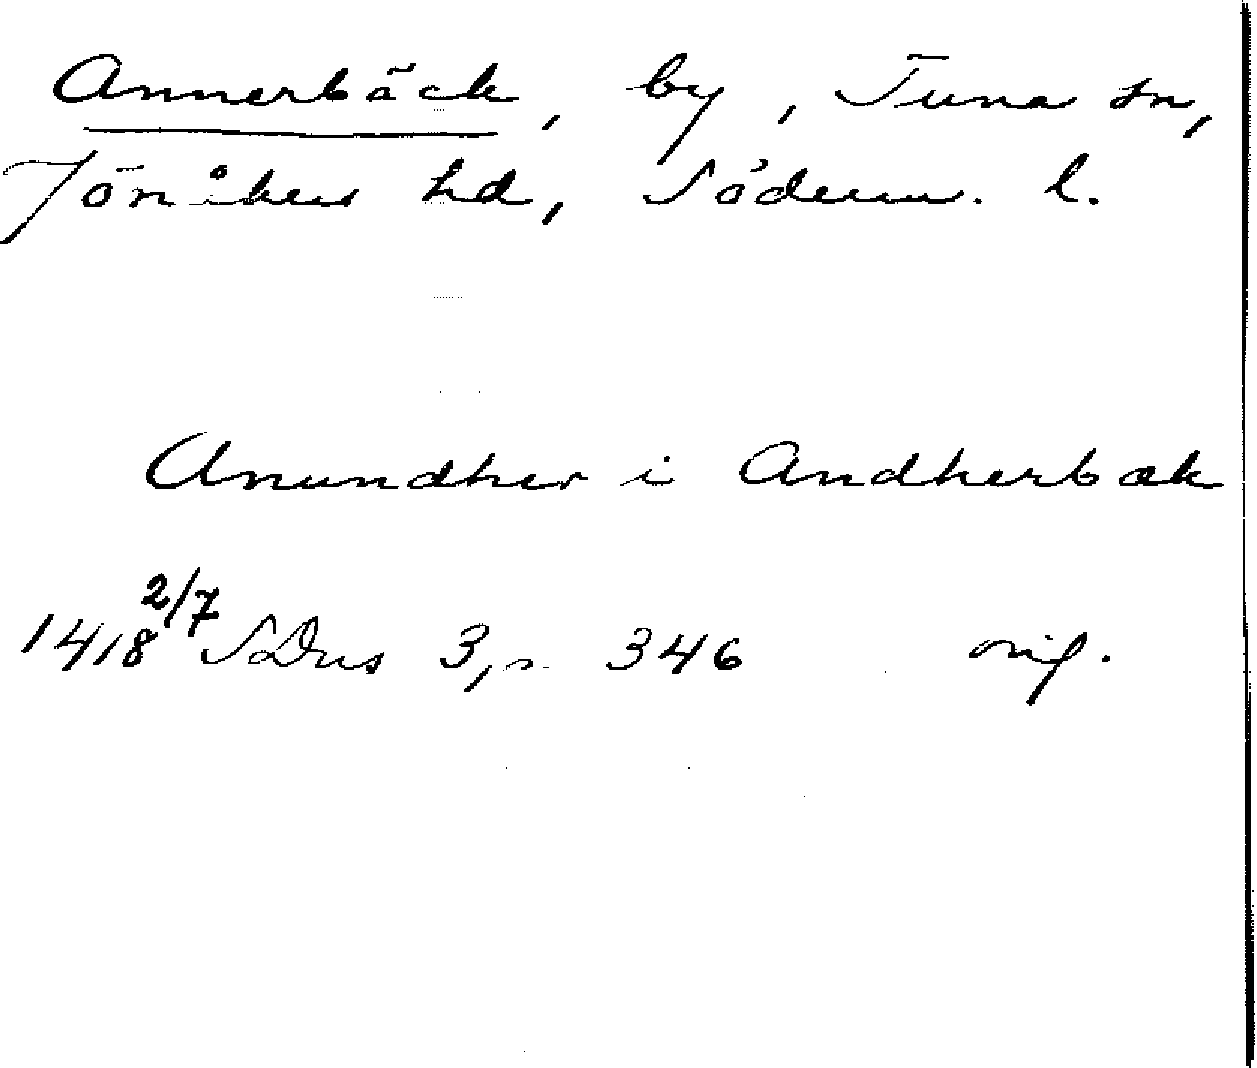 Annerbäck, by, Tuna sn,
Jönåkers hd, Söderm. l.
Anundher i Andherbæk
1418 2/7 SDns 3, s. 346 orig.